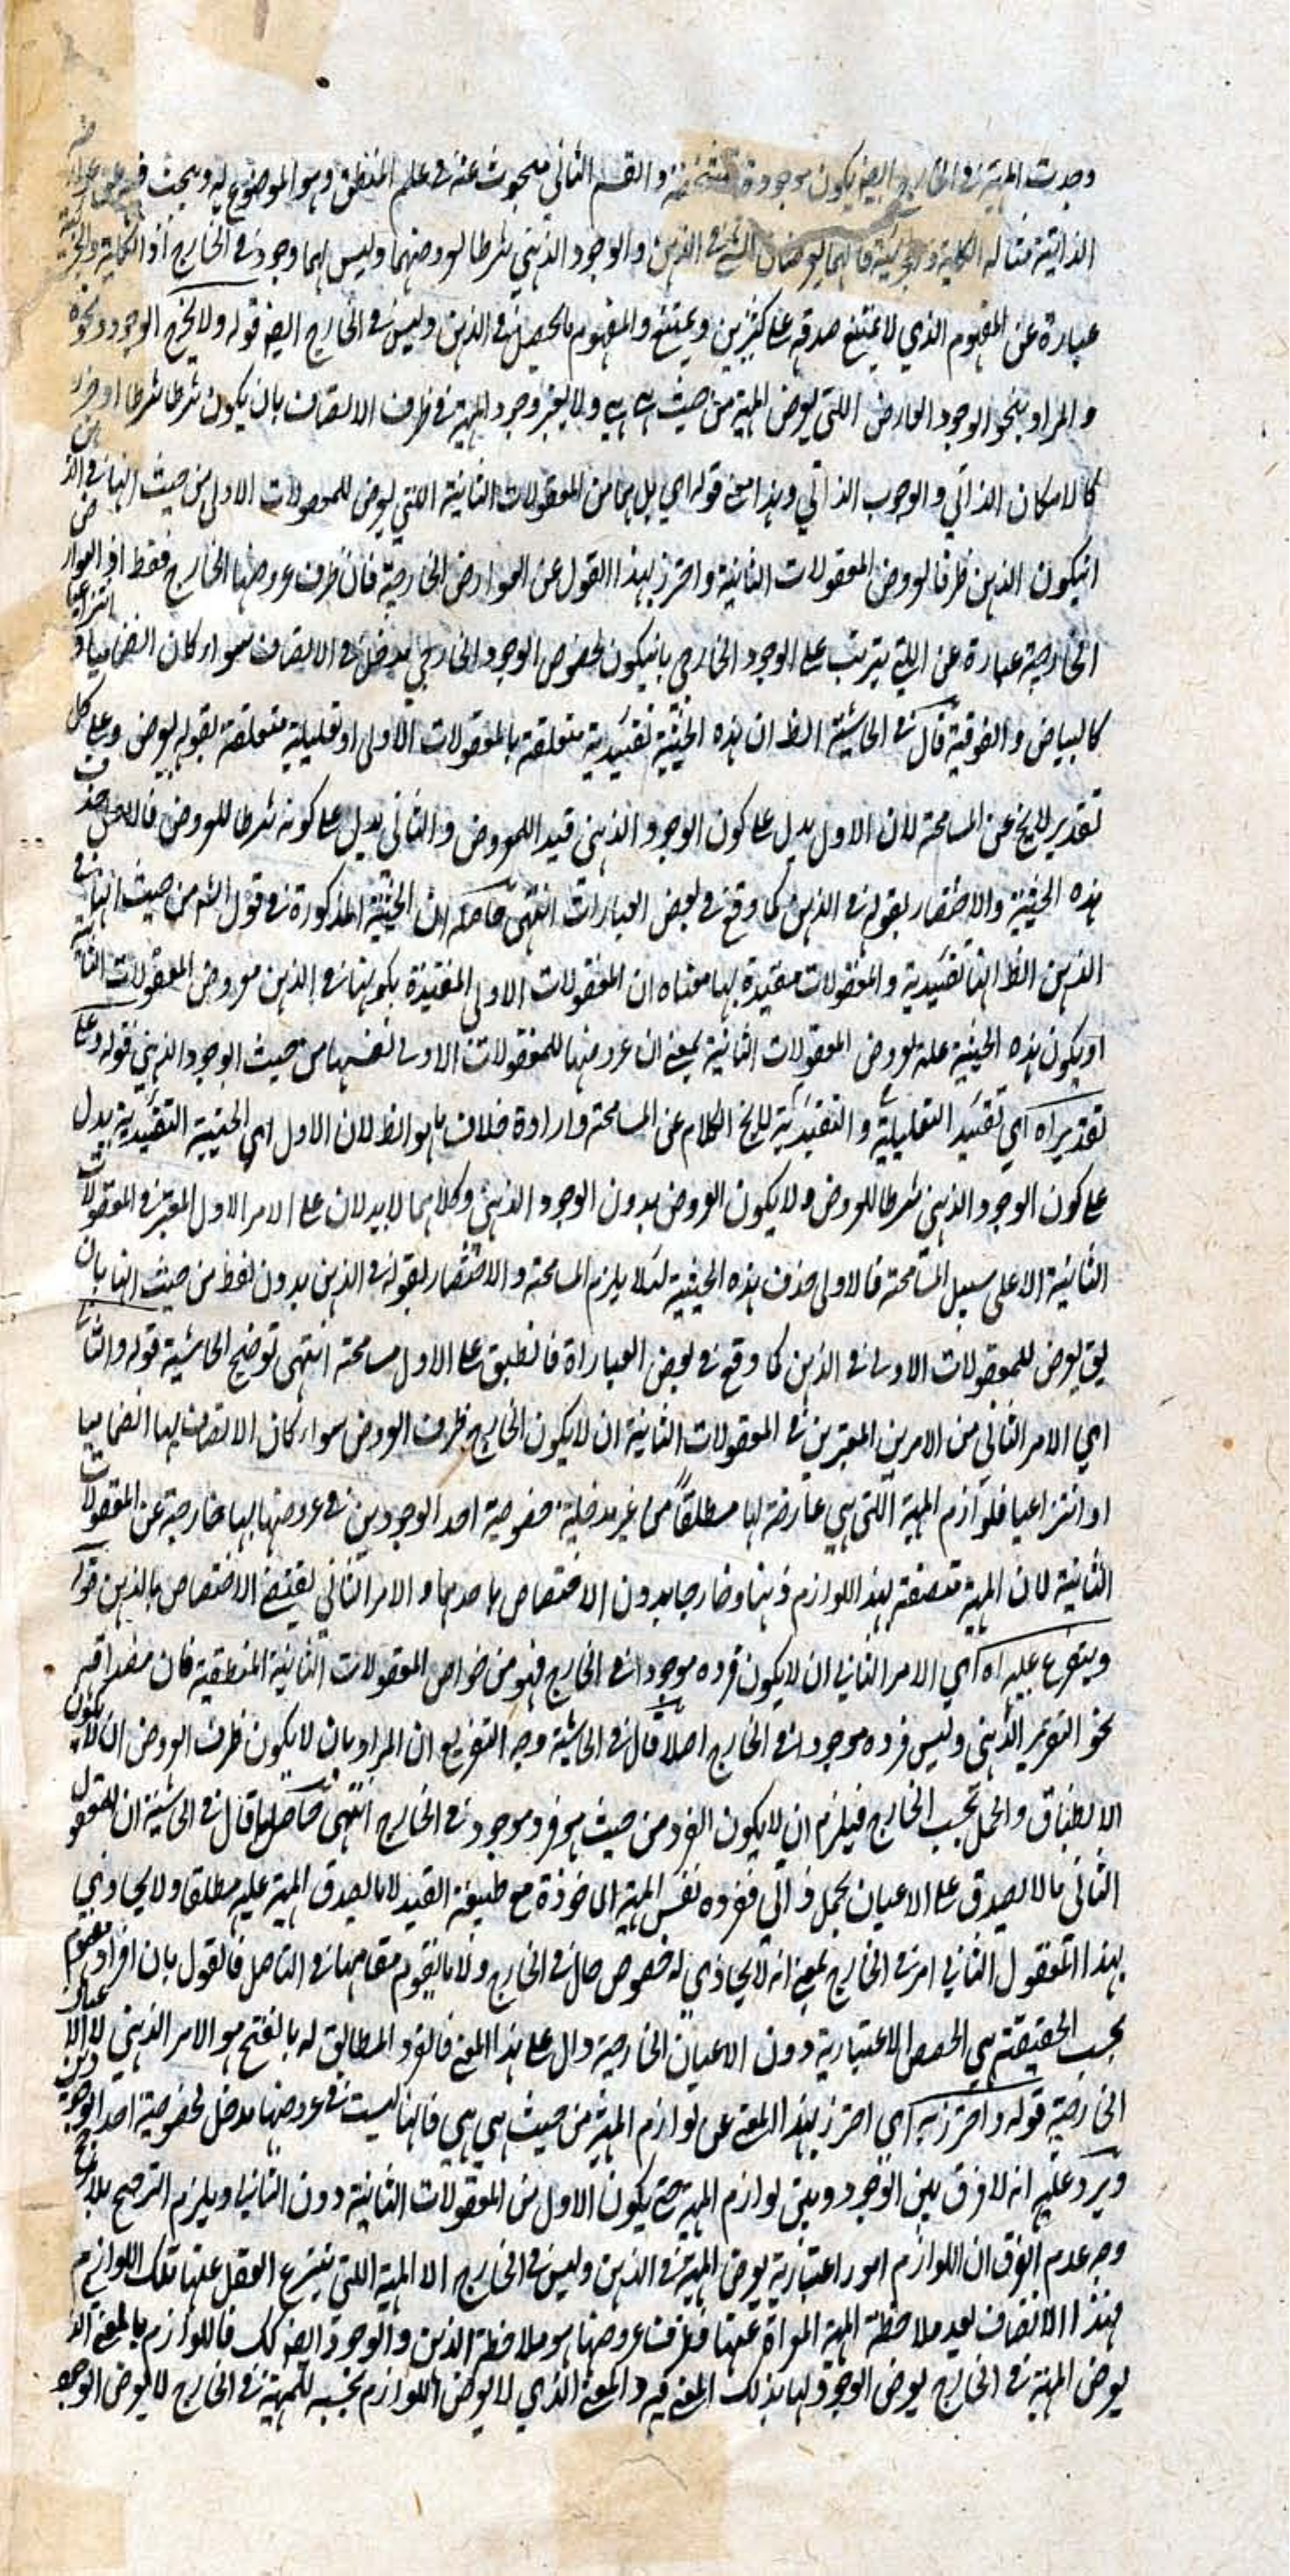 وجدت المهية في الخارج ايضا يكون موجودة متشخصة والقسم الثاني مبحوث عنه في علم المنطق وهو الموضوع له ويبحث فيه عن عوارضه
الذاتية مثاله الكلية والجزئية فانهما يعرضان الشئ في الذهن والوجود الذهني شرط لعروضهما وليس لهما وجود في الخارج اذ الكلية والجزئية
عبارة عن المفهوم الذي لا يمتنع صدقه على كثيرين ويمتنع والمفهوم ما يحصل في الذهن وليس في الخارج ايضا قوله ولا يخرج الوجود ونحوه
والمراد بنحو الوجود العارض اللتي يعرض المهية من حيث هي هي ولا يعتبر وجود المهية في ظرف الاتصاف بان يكون شرطا شرطا او جزء
كالامكان الذاتي والوجوب الذاتي وهذا معنى قوله اي بل هما من المعقولات الثانية اللتي يعرض للمعقولات الاولى من حيث انها في الذهن
انيكون الذهن ظرفا لعروض المعقولات الثانية واحترز بهذا القول عن العوارض الخارجية فان ظرف عروضها الخارج فقط اذ العوارض
الخارجية عبارة عن التي يترتب على الوجود الخارجي بانيكون لخصوص الوجود الخارجي مدخل في الاتصاف سواء كان انضماميا او انتزاعيا
كالبياض والفوقية قال في الحاشية الظ ان هذه الحيثية تقييدية متعلقة بالمعقولات الاولى او تعليلية متعلقة بقوله يعرض وعلى كل
تقدير لا يخ عن المسامحة لان الاول يدل على كون الوجود الذهني قيدا للمعروض والثاني يدل على كونه شرطا للعروض فالاولى حذف
هذه الحيثية والاختصار بقوله في الذهن كما وقع في بعض العبارات انتهى حاصله ان الحيثية المذكورة في قول الش من حيث انها في
الذهن الظ انها تقييدية والمعقولات مقيدة بها معناه ان المعقولات الاولى المقيدة بكونها في الذهن معروض المعقولات الثانية
او يكون هذه الحيثية علة لعروض المعقولات الثانية بمعنى ان عروضها للمعقولات الاولى نفسها من حيث الوجود الذهني قوله وعلى
تقدير اه اي تقييد التعليلية والتقييدية لا يخ الكلام عن المسامحة وارادة خلاف ما هو الظ لان الاول اي الحيثية التقييدية يدل
على كون الوجود الذهني شرطا للعروض ولا يكون العروض بدون الوجود الذهني وكلاهما لا يدلان على الامر الاول المعتبر في المعقولات
الثانية الا على سبيل المسامحة فالاولى حذف هذه الحيثية لئلا يلزم المسامحة والاختصار بقوله في الذهن بدون لفظ من حيث انها بان
يق يعرض للمعقولات الاولى في الذهن كما وقع في بعض العباراة فانطبق على الاول مسامحة انتهى توضيح الحاشية قوله والثاني
اي الامر الثاني من الامرين المعتبرين في المعقولات الثانية ان لا يكون الخارج ظرف العروض سواء كان الاتصاف بها انضماميا
او انتزاعيا فلوازم المهية اللتي هي عارضة لها مطلقاً من غير مدخلية خصوصية احد الوجودين في عروضها لها خارجة عن المعقولات
الثانية لان المهية متصفة بهذ اللوازم ذهنا وخارجا بدون الاختصاص باحدهما والامر الثاني يقتضي الاختصاص بالذهن قوله
ويتفرع عليه اه اي الامر الثاني ان لا يكون فرده موجودا في الخارج فهو من خواص المعقولات الثانية المنطقية فان مصداقه
نحو التقرر الذهني وليس فرده موجودا في الخارج اصلا قال في الحاشية وجه التفريع ان المراد بان لا يكون ظرف العروض ان لا يكون
الانطباق والحمل بحسب الخارج فيلزم ان لا يكون الفرد من حيث هو فرد موجود في الخارج انتهى حاصلها قال في الحاشية ان المعقول
الثاني ما لا يصدق على الاعيان بحمل ذاتي ففرده نفس المهية الماخوذة مع طبيعة القيد لا ما يصدق المهية عليه مطلقا ولا يحاذي
بهذا المعقول الثاني امر في الخارج بمعنى انه لا يحاذي له خصوص حال في الخارج ولا ما يقوم مقامها في التاصل فالقول بان افراد مفهوم
بحسب الحقيقة هي الحصص الاعتبارية دون الاعيان الخارجية دال على هذا المعنى فالفرد المطابق له بالفتح هو الامر الذهني لا الاعيان
الخارجية قوله واحترز به اي احترز بهذا المعنى عن لوازم المهية من حيث هي هي فانها ليست في عروضها مدخل لخصوصية احد الوجودين
ويرد عليه انه لا فرق بين الوجود وبين لوازم المهية حتى يكون الاول من المعقولات الثانية دون الثاني ويلزم الترجيح بلا مرجح
وجه عدم الفرق ان اللوازم امور اعتبارية يعرض المهية في الذهن وليس في الخارج الا المهية اللتي ينتزع العقل عنها تلك اللوازم
فهذا الاتصاف بعد ملاحظة المهية المعراة عنها فظرف عروضها هو ملاحظة الذهن والوجود ايضا كك فاللوازم بالمعنى الذي
يعرض المهية في الخارج يعرض الوجود لها بذلك المعنى فيه والمعنى الذي لا يعرض اللوازم بحسبه للمهية في الخارج لا يعرض الوجود